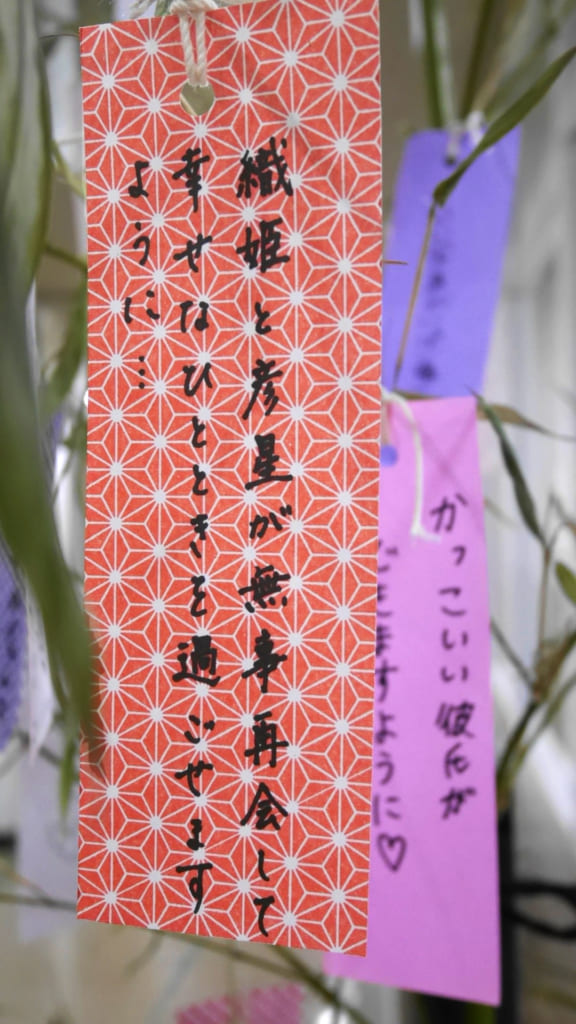 織姫と彦星が無事再会して
幸せなひとときを過ごせます
ように…
かっこいい彼氏が
できますように♡